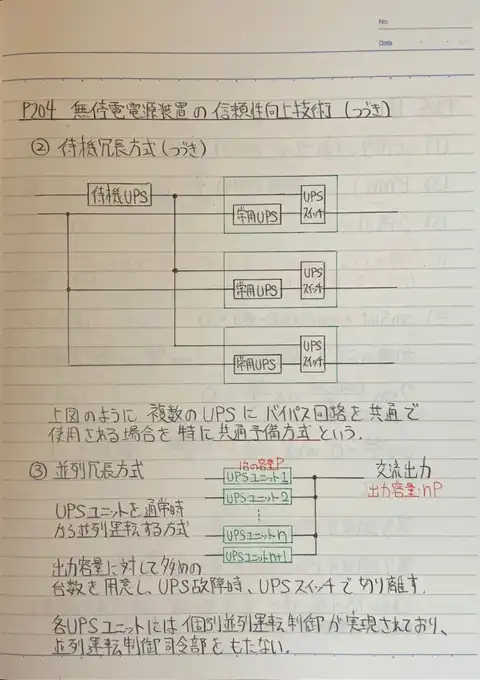 No.
Date
P204 無停電電源装置の信頼性向上技術(つづき)
② 待機冗長方式(つづき)
待機UPS
UPS
スイッチ
常用UPS
UPS
スイッチ
常用UPS
UPS
スイッチ
常用UPS
上図のように 複数のUPSにバイパス回路を共通で
使用される場合を特に共通予備方式という。
③ 並列冗長方式
1台の容量P
UPSユニット1
UPSユニット2
UPSユニットn
UPSユニットn+1
交流出力
出力容量:nP
UPSユニットを通常時
から並列運転する方式
出力容量に対して多めの
台数を用意し、UPS故障時、UPSスイッチで切り離す。
各UPSユニットには個別並列運転制御が実現されており、
並列運転制御司令部をもたない。